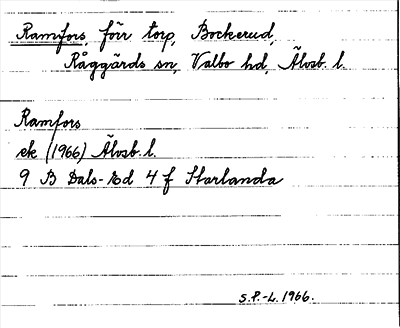 Ramfors, förr torp, Bockerud,
Råggärds sn, Valbo hd, Älvsb. l.
Ramfors
ek (1966) Älvsb. l.
9 B Dals-Ed 4 f Starlanda
S.P.-L. 1966.